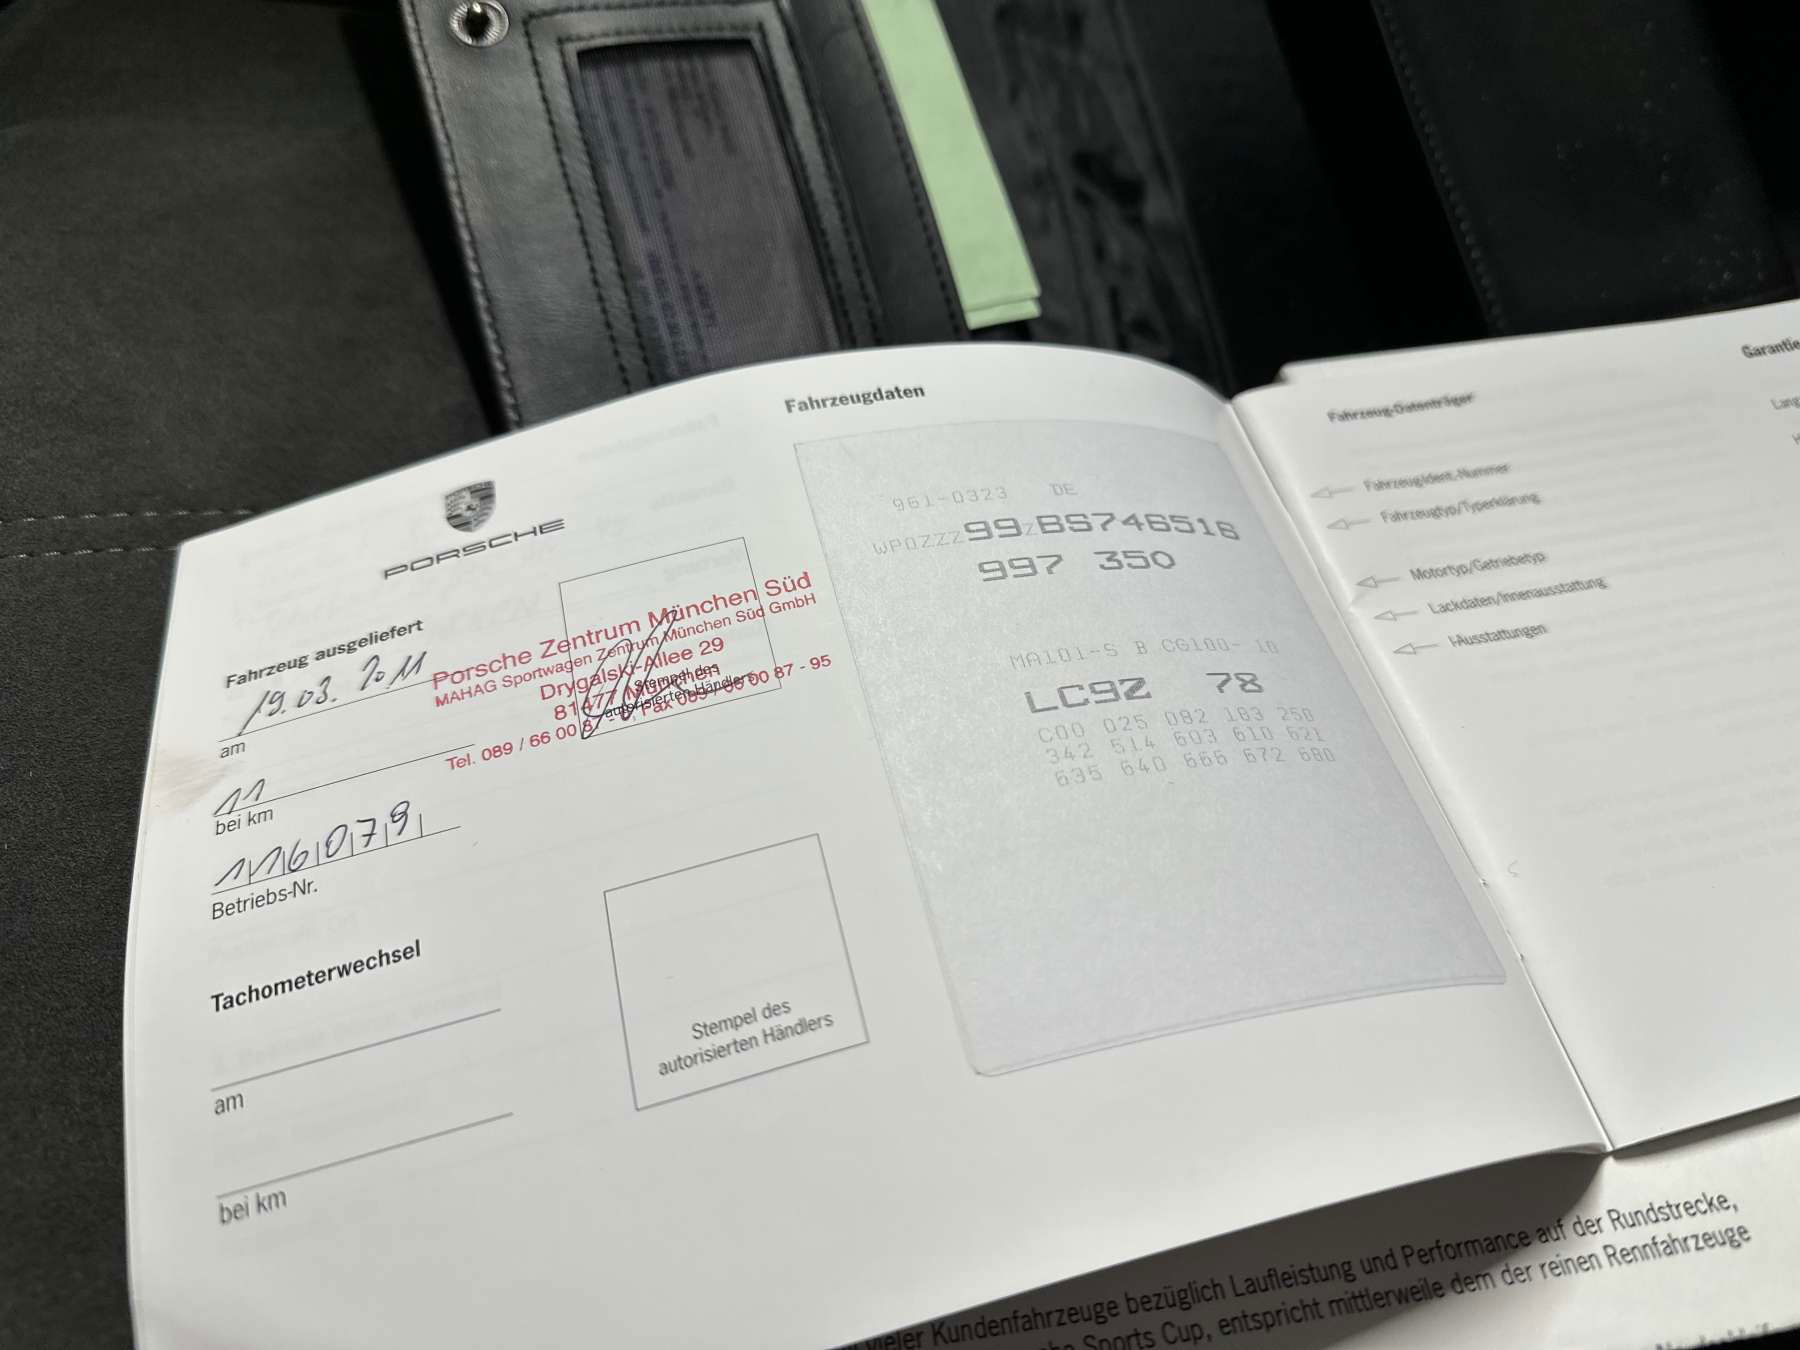 PORSCHE
Fahrzeug ausgeliefert
19.03.2011
am
11
bei km
116079
Betriebs-Nr.
Porsche Zentrum München Süd
MAHAG Sportwagen Zentrum München Süd GmbH
Drygalski-Allee 29
81477 München
Tel. 089 / 66 00 87 - 0, Fax 089 / 66 00 87 - 95
Stempel des
autorisierten Händlers
Tachometerwechsel
am
bei km
Stempel des
autorisierten Händlers
Fahrzeugdaten
961-0323 DE
WP0ZZZ99ZBS746516
997 350
MA101-S B CG100- 10
LC9Z 78
C00 025 082 183 250
342 514 603 610 621
635 640 666 672 680
Garantie
Fahrzeug-Datenträger
Fahrzeugident.-Nummer
Fahrzeugtyp/Typerklärung
Motortyp/Getriebetyp
Lackdaten/Innenausstattung
I-Ausstattungen
Lang
vieler Kundenfahrzeuge bezüglich Laufleistung und Performance auf der Rundstrecke,
Sports Cup, entspricht mittlerweile dem der reinen Rennfahrzeuge